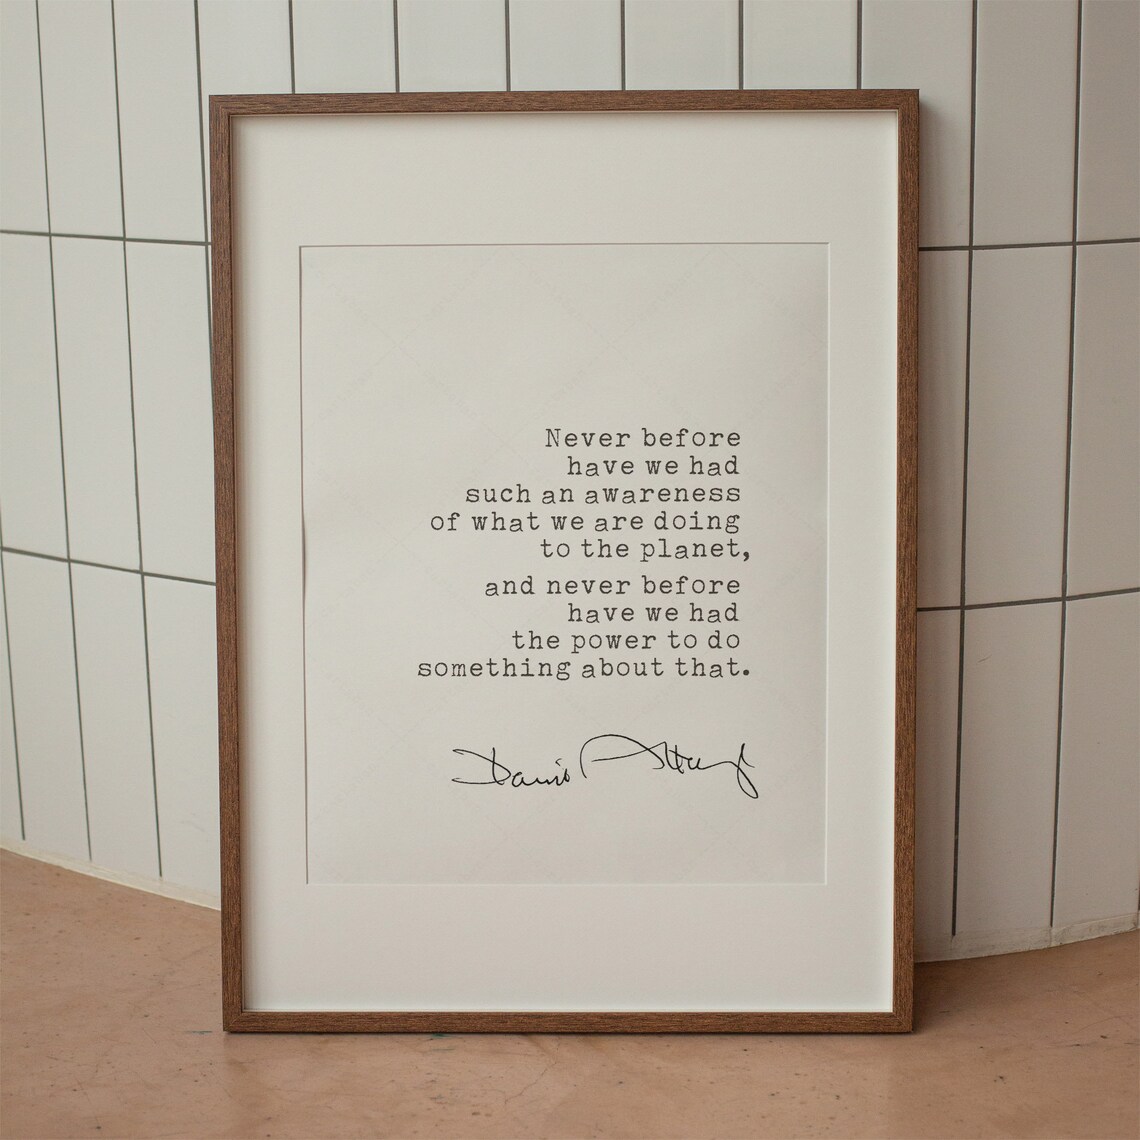 Never before
have we had
such an awareness
of what we are doing
to the planet,
and never before
have we had
the power to do
something about that.
David Attenborough